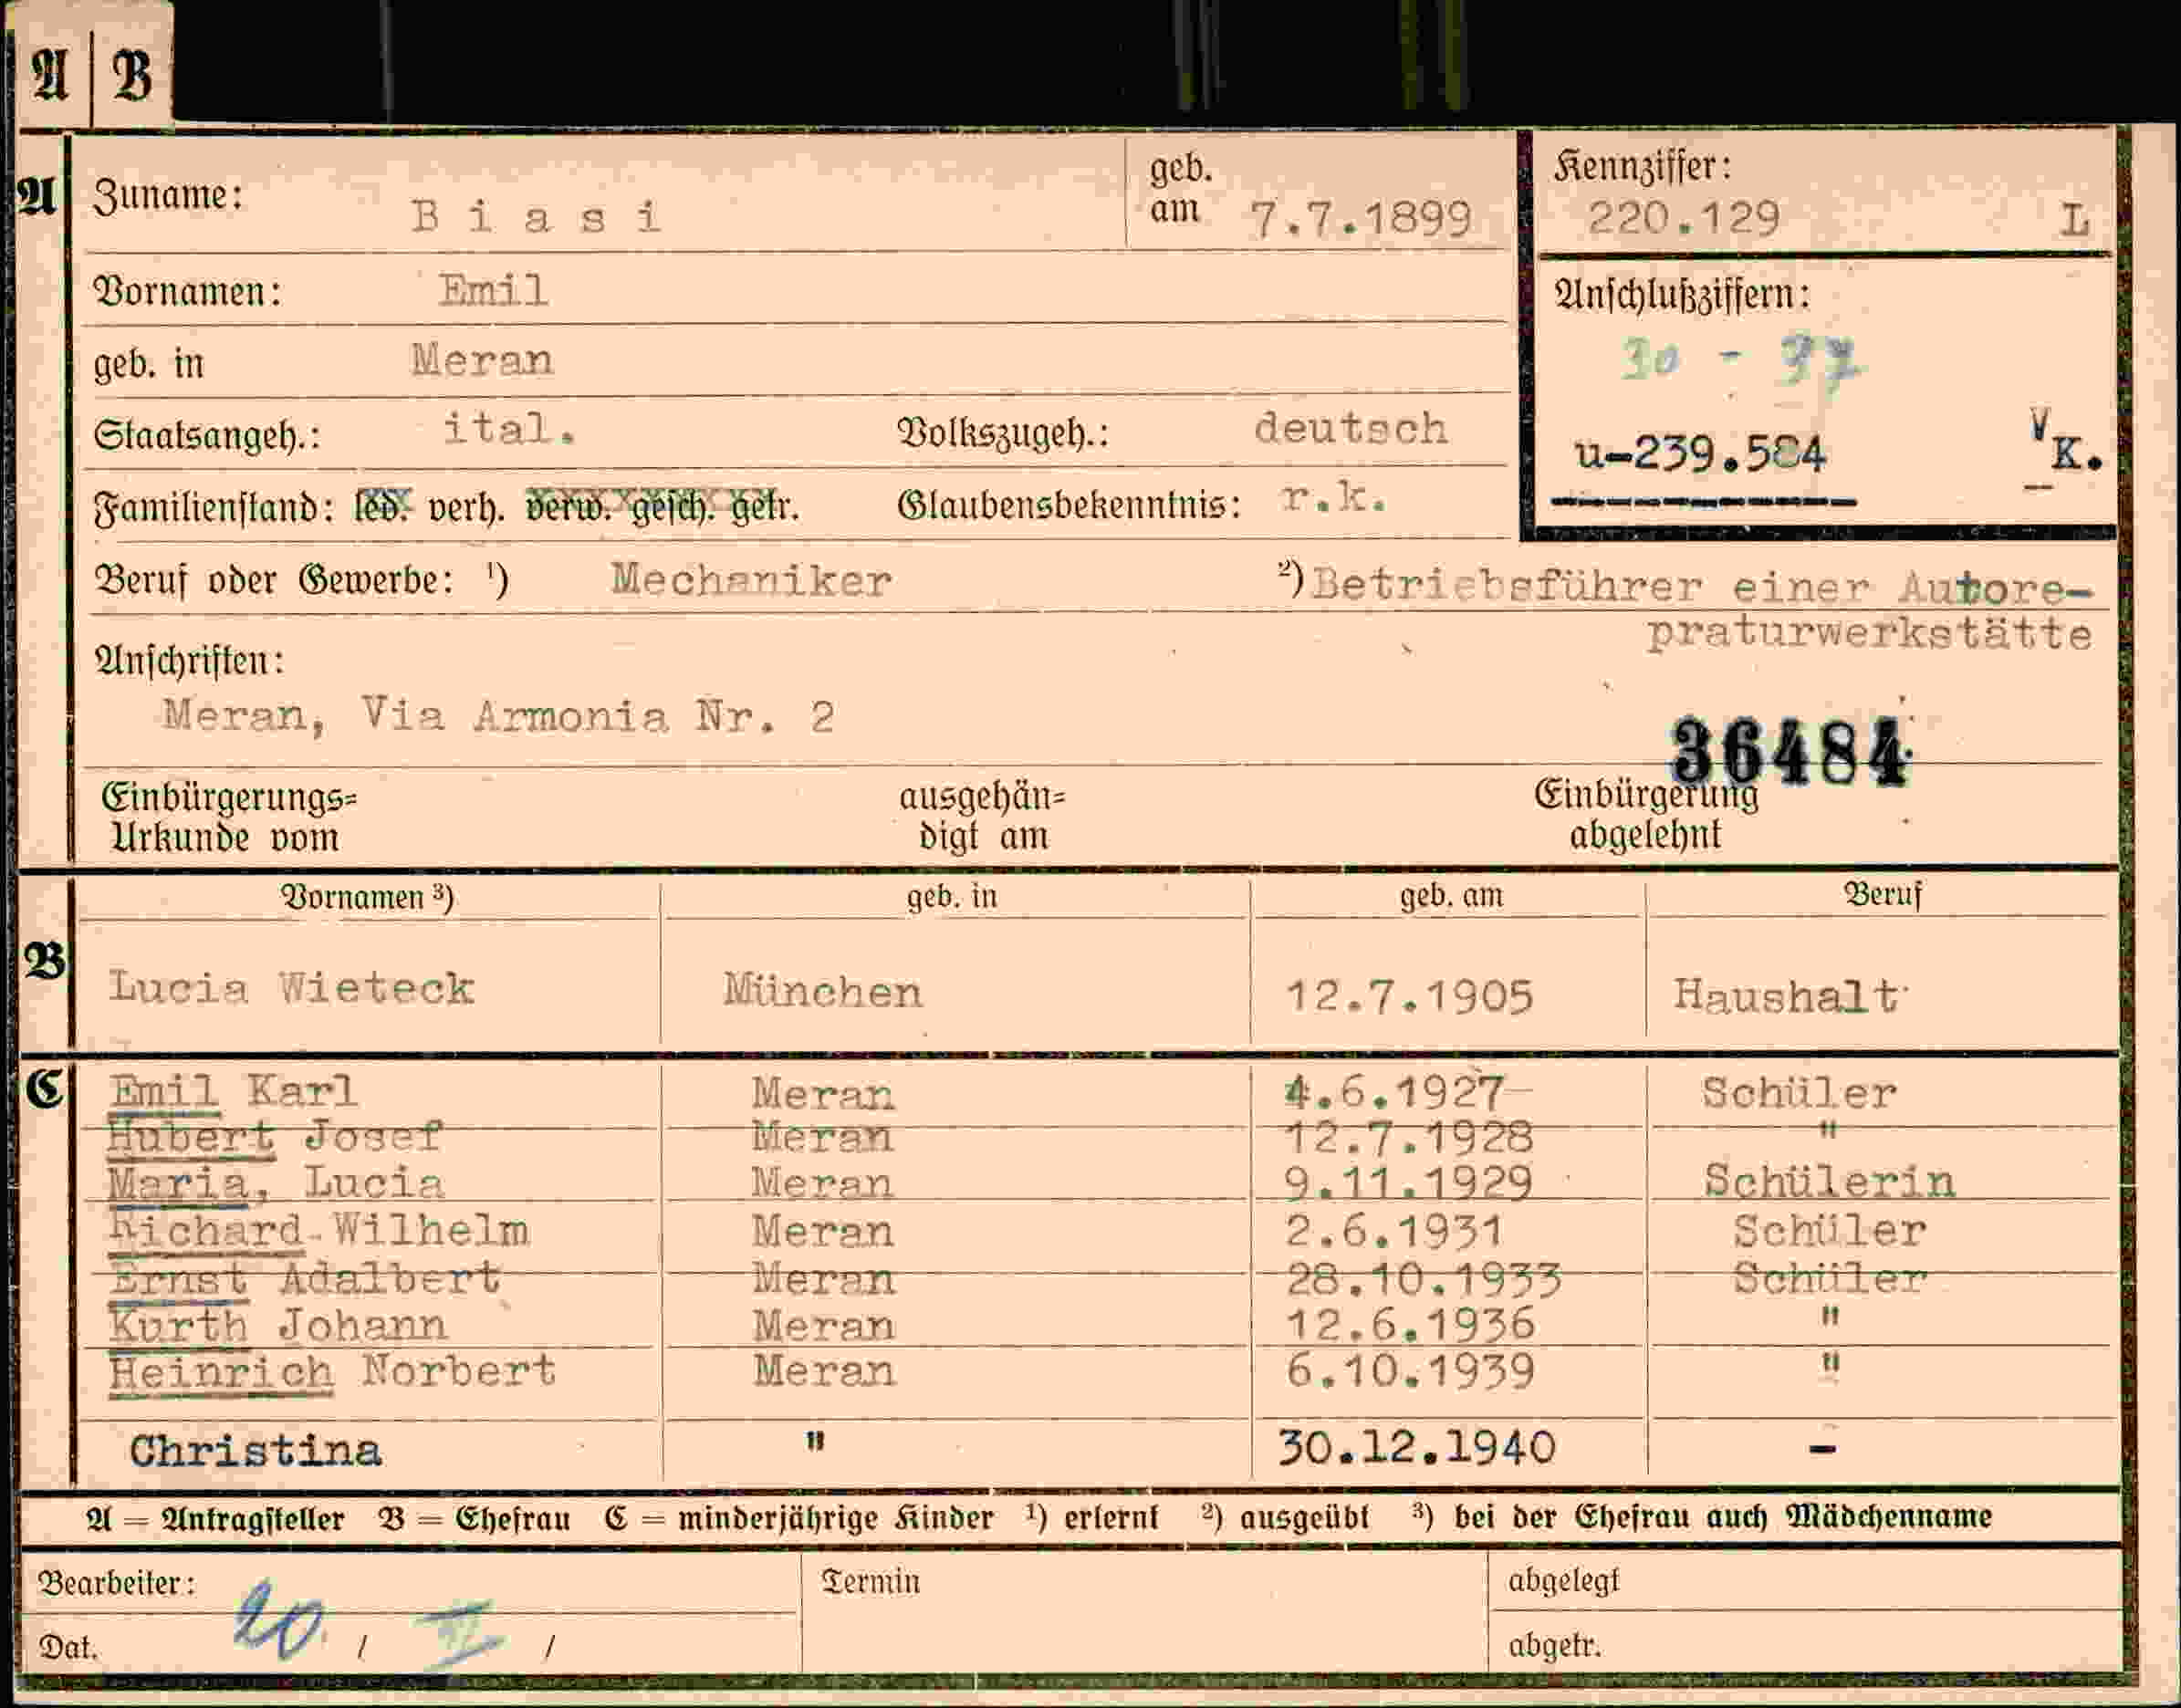 A B
A Zuname: Biasi geb. am 7.7.1899 Kennziffer: 220.129 L
Vornamen: Emil Anschlußziffern:
geb. in Meran 30 - 37
Staatsangeh.: ital. Volkszugeh.: deutsch u-239.584 V K.
Familienstand: led. verh. verw. gesch. getr. Glaubensbekenntnis: r.k.
Beruf oder Gewerbe: ¹) Mechaniker ²) Betriebsführer einer Autore-
praturwerkstätte
Anschriften:
Meran, Via Armonia Nr. 2
36484
Einbürgerungs= ausgehän= Einbürgerung
Urkunde vom digt am abgelehnt
Vornamen ³) geb. in geb. am Beruf
B Lucia Wieteck München 12.7.1905 Haushalt
C Emil Karl Meran 4.6.1927 Schüler
Hubert Josef Meran 12.7.1928 "
Maria, Lucia Meran 9.11.1929 Schülerin
Richard Wilhelm Meran 2.6.1931 Schüler
Ernst Adalbert Meran 28.10.1933 Schüler
Kurth Johann Meran 12.6.1936 "
Heinrich Norbert Meran 6.10.1939 "
Christina " 30.12.1940 -
A = Antragsteller B = Ehefrau C = minderjährige Kinder ¹) erlernt ²) ausgeübt ³) bei der Ehefrau auch Mädchenname
Bearbeiter: Termin abgelegt
Dat. 20. / / abgetr.